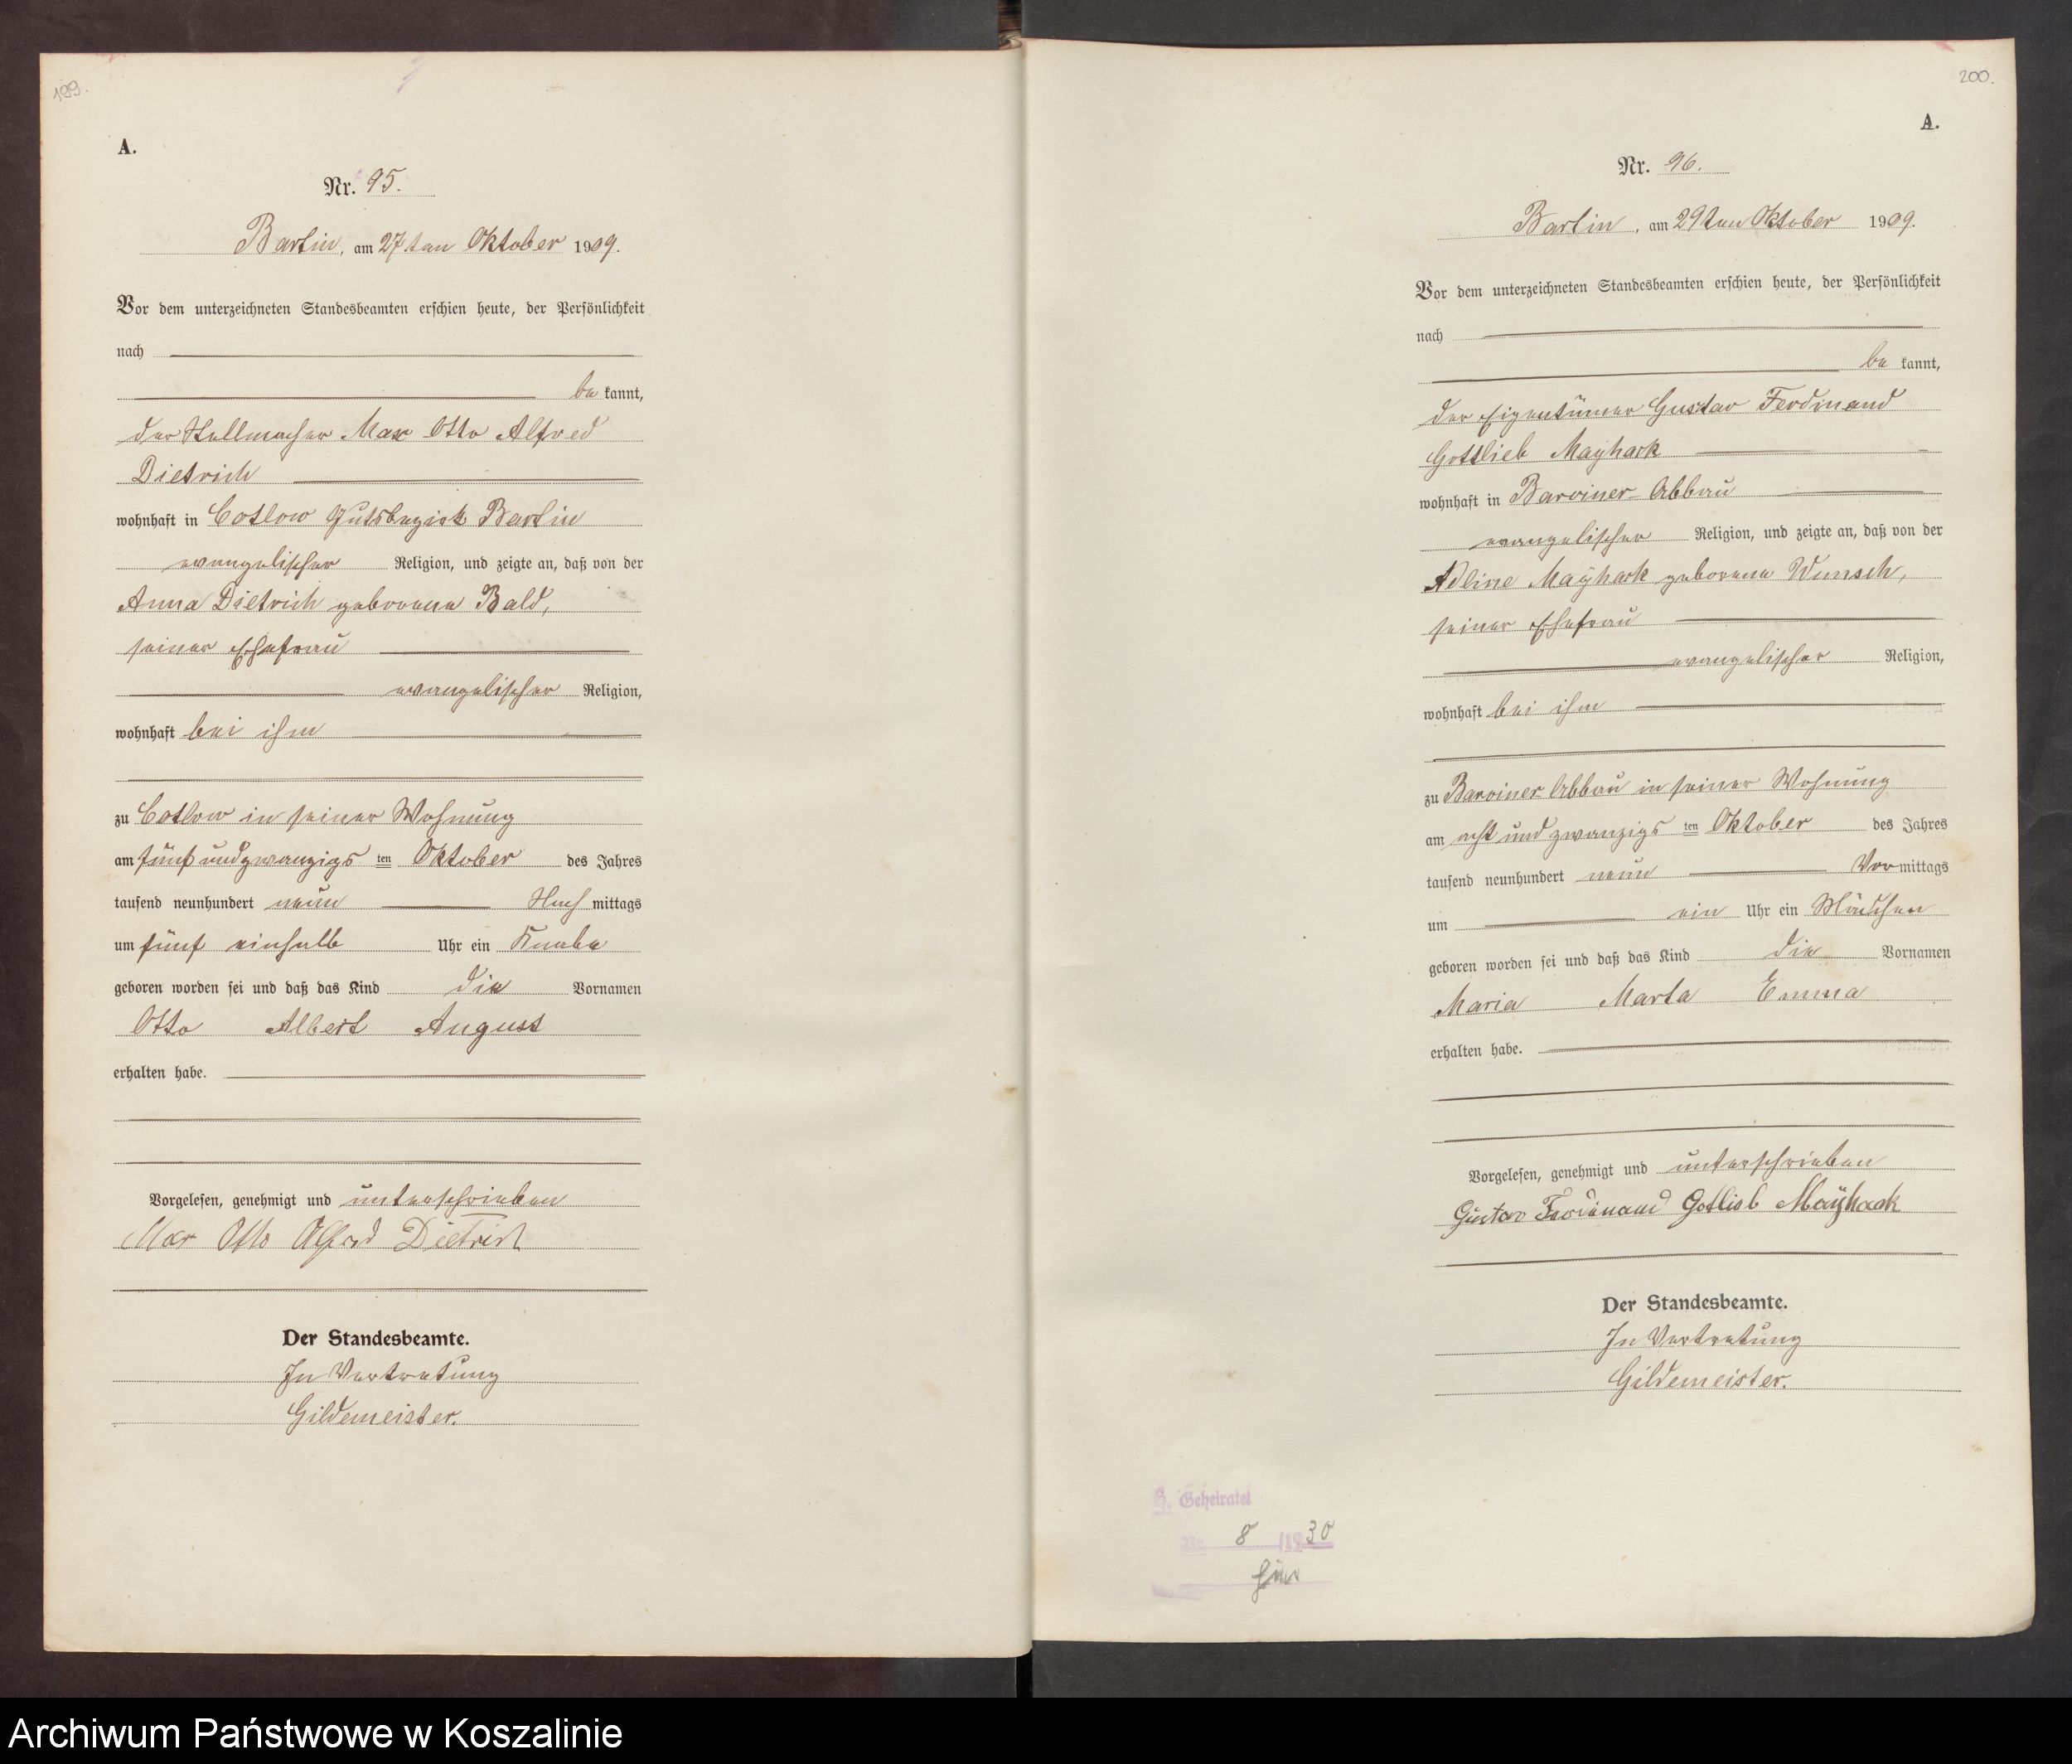 199.
A.
Nr. 95.
Bartin, am 27ten Oktober 1909.
Vor dem unterzeichneten Standesbeamten erschien heute, der Persönlichkeit
nach
be kannt,
der Stellmacher Max Otto Alfred
Dietrich
wohnhaft in Cotlow Gutsbezirk Bartin
evangelischer Religion, und zeigte an, daß von der
Anna Dietrich geborene Bald,
seiner Ehefrau
evangelischer Religion,
wohnhaft bei ihm
zu Cotlow in seiner Wohnung
am fünf und zwanzigs ten Oktober des Jahres
tausend neunhundert neun Nach mittags
um fünf einhalb Uhr ein Knabe
geboren worden sei und daß das Kind die Vornamen
Otto Albert August
erhalten habe.
Vorgelesen, genehmigt und unterschrieben
Max Otto Alfred Dietrich
Der Standesbeamte.
In Vertretung
Gildemeister.
200.
A.
Nr. 96.
Bartin, am 29ten Oktober 1909.
Vor dem unterzeichneten Standesbeamten erschien heute, der Persönlichkeit
nach
be kannt,
der Eigentümer Gustav Ferdinand
Gottlieb Mayhack
wohnhaft in Barviner Abbau
evangelischer Religion, und zeigte an, daß von der
Adline Mayhack geborene Wunsch,
seiner Ehefrau
evangelischer Religion,
wohnhaft bei ihm
zu Barviner Abbau in seiner Wohnung
am acht und zwanzigs ten Oktober des Jahres
tausend neunhundert neun Vor mittags
um ein Uhr ein Mädchen
geboren worden sei und daß das Kind die Vornamen
Maria Marta Emma
erhalten habe.
Vorgelesen, genehmigt und unterschrieben
Gustav Ferdinand Gotlieb Mayhack
Der Standesbeamte.
In Vertretung
Gildemeister.
Geheiratet
Nr. 8 /1930
Archiwum Państwowe w Koszalinie